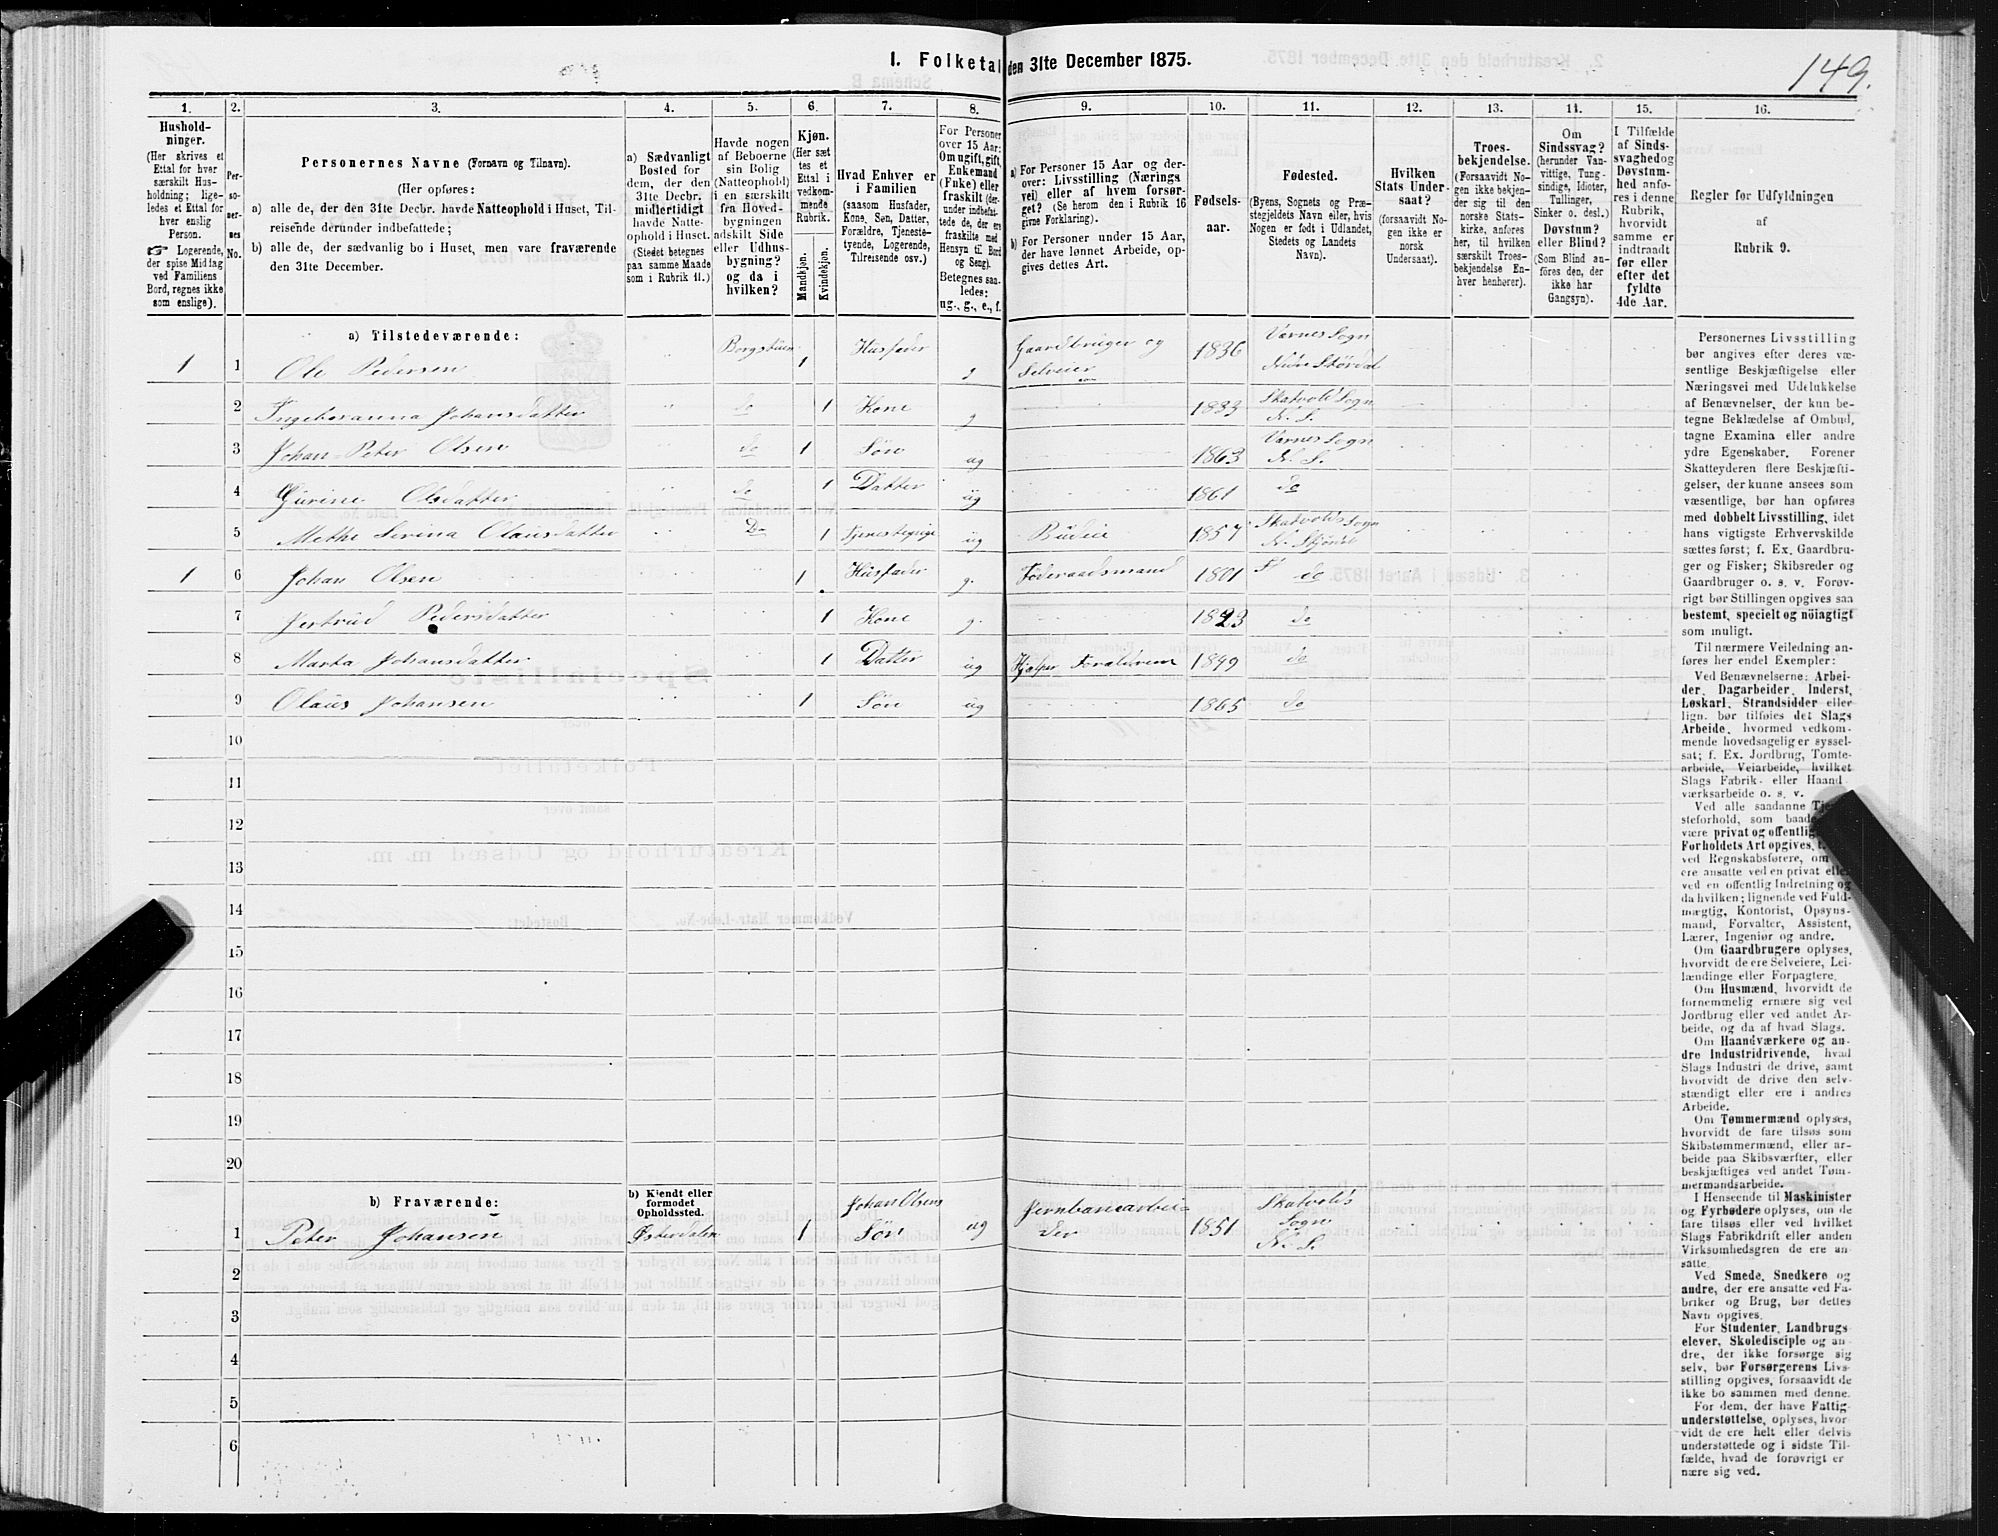 149.
I. Folketal den 31te December 1875.
1. 2. 3. 4. 5. 6. 7. 8. 9. 10. 11. 12. 13. 14. 15. 16.
Hushold-
ninger.
(Her skrives et
Ettal for hver
særskilt Hus-
holdning; lige-
ledes et Ettal for
hver enslig
Person.
☞ Logerende,
der spise Middag
ved Familiens
Bord, regnes ikke
som enslige).
Per-
so-
ner-
nes
No.
Personernes Navne (Fornavn og Tilnavn).
(Her opføres:
a) alle de, der den 31te Decbr. havde Natteophold i Huset, Til-
reisende derunder indbefattede;
b) alle de, der sædvanlig bo i Huset, men vare fraværende
den 31te December.
a) Sædvanligt
Bosted for
dem, der den
31te Decbr.
midlertidigt
havde Natte-
ophold i Huset.
(Stedet betegnes
paa samme Maade
som i Rubrik 11.)
Havde nogen
af Beboerne
sin Bolig
(Natteophold)
i en særskilt
fra Hoved-
bygningen
adskilt Side
eller Udhus-
bygning?
og da i
hvilken?
Kjøn.
(Her sæt
tes et
Ettal i
vedkom-
mende
Rubrik.
Mandkjøn.
Kvindekjøn.
Hvad Enhver er
i Familien
(saasom Husfader,
Kone, Søn, Datter,
Forældre, Tjeneste-
tyende, Logerende,
Tilreisende osv.)
For Personer
over 15 Aar:
Om ugift, gift,
Enkemand
(Fuke) eller
fraskilt (der-
under indbefat-
tede de, der ere
fraskilte med
Hensyn til Bord
og Seng).
Betegnes saa-
ledes:
ug., g., e., f.
a) For Personer 15 Aar og der-
over: Livsstilling (Nærings
vei) eller af hvem forsør-
get? (Se herom den i Rubrik 16
givne Forklaring).
b) For Personer under 15 Aar,
der have lønnet Arbeide, op-
gives dettes Art.
Fødsels-
aar.
Fødested.
(Byens, Sognets og Præ-
stegjeldets Navn eller, hvis
Nogen er født i Udlandet,
Stedets og Landets
Navn).
Hvilken
Stats Under-
saat?
(forsaavidt No-
gen ikke er
norsk
Undersaat).
Troes-
bekjendelse.
(Forsaavidt No-
gen ikke bekjen-
der sig til den
norske Stats-
kirke, anføres
her, til hvilken
særskilt Troes-
bekjendelse En-
hver henhører).
Om
Sindssvag?
(herunder Van-
vittige, Tung-
sindige, Idioter,
Tullinger,
Sinker o. desl.)
Døvstum?
eller Blind?
(Som Blind an-
føres den, der
ikke har
Gangsyn).
I Tilfælde
af Sinds-
svaghed og
Døvstum-
hed anfø-
res i denne
Rubrik,
hvorvidt
samme er
indtraadt
før eller
efter det
fyldte
4de Aar.
Regler før Udfyldningen
af
Rubrik 9.
a) Tilstedeværende:
1 1 Ole Pedersen Borgstuen 1 Husfader g Gaardbruger og Selveier 1836 Værnes Sogn Nedre Stördal
2 Ingeboranna Johansdatter do 1 Kone g 1833 Skatvold Sogn N. S.
3 Johan-Peter Olsen do 1 Søn ug 1863 Værnes Sogn N. S.
4 Gurine Olsdatter do 1 Datter ug 1861 do
5 Methe Serina Olausdatter Do 1 Tjenestepige ug Budeie 1857 Skatvolds Sogn N. Stjördal
1 6 Johan Olsen 1 Husfader g. Föderaadsmand 1801 do
7 Jertrud Pedersdatter 1 Kone g. 1823 do
8 Marta Johansdatter 1 Datter ug Hjælper Forældrene 1849 do
9 Olaus Johansen 1 Søn ug 1865 do
10
11
12
13
14
15
16
17
18
19
20
b) Fraværende:
b) Kjendt eller
formodet
Opholdssted.
1 Peter Johansen Østerdalen 1 Johan Olsens Søn ug Jernbanearbei-
der 1851 Skatvolds Sogn N. S.
2
3
4
5
6
Personernes Livsstilling
bør angives efter deres væ-
sentlige Beskjæftigelse eller
Næringsvei med Udelukkelse
af Benævnelser, der kun be-
tegne Beklædelse af Ombud,
tagne Examina eller andre
ydre Egenskaber. Forener
Skatteyderen flere Beskjæfti-
gelser, der kunne ansees som
væsentlige, bør han opføres
med dobbelt Livsstilling, idet
hans vigtigste Erhvervskilde
sættes først; f. Ex. Gaardbru-
ger og Fisker; Skibsreder og
Gaardbruger o. s. v. Forøv-
rigt bør Stillingen opgives saa
bestemt, specielt og nöiagtigt
som muligt.
Til nærmere Veiledning an-
føres her endel Exempler:
Ved Benævnelserne: Arbei-
der, Dagarbeider, Inderst,
Løskarl, Strandsidder eller
lign. bør tilføies det Slags
Arbeide, hvormed vedkom-
mende hovedsagelig er syssel-
sat; f. Ex. Jordbrug, Tomte-
arbeide, Veiarbeide, hvilket
Slags Fabrik- eller Haand
værksarbeide o. s. v.
Ved alle saadanne
steforhold, som
være privat og
Forholdets Art opgives,
ved Regnskabsførere, om
ere ansatte ved en privat
ved en offentlig Indretning og
da hvilken; lignende ved Fuld-
mægtig, Kontorist, Opsyns-
mand, Forvalter, Assistent,
Lærer, Ingeniør og andre.
Om Gaardbrugere oplyses,
hvorvidt de ere Selveiere, Lei-
lændinge eller Forpagtere.
Om Husmænd, hvorvidt de
fornemmelig ernære sig ved
Jordbrug eller ved andet Ar-
beide, og da af hvad Slags.
Om Haandværkere og an-
dre Industridrivende, hvad
Slags Industri de drive, samt
hvorvidt de drive den selv-
stændigt eller ere i andres
Arbeide.
Om Tømmermænd oplyses,
hvorvidt de fare tilsøs som
Skibstømmermænd, eller ar-
beide paa Skibsværfter, eller
beskjæftiges ved andet Tøm-
mermandsarbeide.
I Henseende til Maskinister
og Fyrbødere oplyses, om de
fare tilsøs eller ved hvilket
Slags Fabrikdrift eller anden
Virksomhedsgren de ere an-
satte.
Ved Smede, Snedkere og
andre, der ere ansatte ved Fa-
briker og Brug, bør dettes
Navn opgives.
For Studenter, Landbrugs-
elever, Skoledisciple og an-
dre, der ikke forsørge sig
selv, bør Forsørgerens Livs-
stilling opgives, forsaavidt de
ikke bo sammen med denne.
For dem, der have Fattig-
understøttelse, oplyses, hvor-
vidt de ere helt eller delvis
understøttede og i sidste Til-
fælde, hvad de forøvrigt er
nære sig ved.